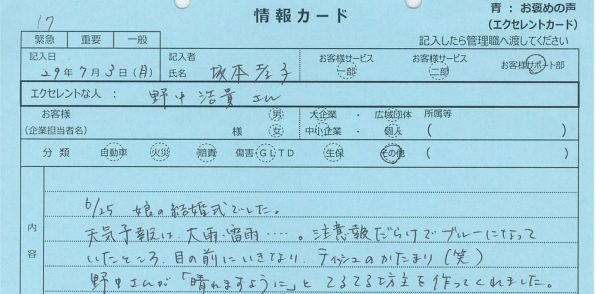 17
情報カード
青 : お褒めの声
(エクセレントカード)
緊急 重要 一般
記入したら管理職へ渡してください
記入日 29年7月3日(月)
記入者 氏名 坂本
お客様サービス 一部
お客様サービス 二部
お客様サポート部
エクセレントな人 : 野中浩貴さん
お客様 (企業担当者名) 様
男 女
大企業 ・ 広域団体
中小企業 ・ 個人
所属等 ( )
分類 自動車 火災 賠責 傷害・GLTD 生保 その他 ( )
内容
6/25 娘の結婚式でした。
天気予報は、大雨・雷雨・・・・。注意報だらけでブルーになって
いたところ、目の前にいきなり、ティッシュのかたまり(笑)
野中さんが「晴れますように」と てるてる坊主を作ってくれました。